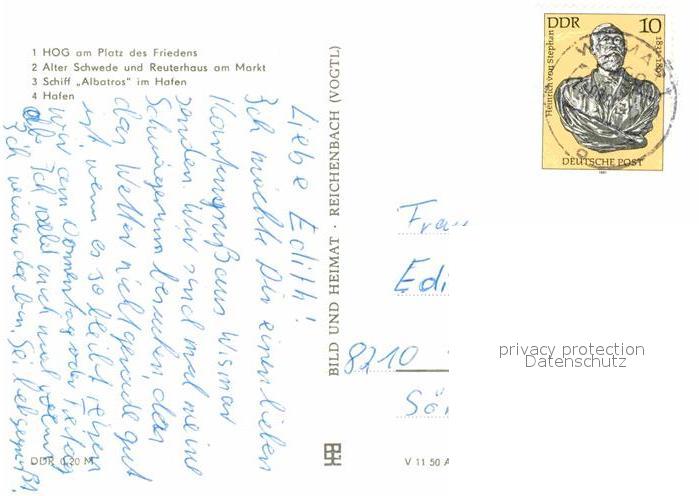 1 HOG am Platz des Friedens
2 Alter Schwede und Reuterhaus am Markt
3 Schiff „Albatros" im Hafen
4 Hafen
Liebe Edith!
Ich möchte Dir einen lieben
Kartengruß aus Wismar
senden. Wir sind mal meine
Schwägerin besuchen, das
das Wetter nicht gerade gut
ist, wenn es so bleibt
wir am Donnerstag oder Freitag
ab. Ich
Ich wieder da bin. Sei lieb gegrüßt.
DDR 0,20 M
BILD UND HEIMAT · REICHENBACH (VOGTL)
V 11 50 A
DDR 10
Heinrich von Stephan
1831-1897
DEUTSCHE POST
1981
Frau
Edi
8210
Sö
privacy protection
Datenschutz